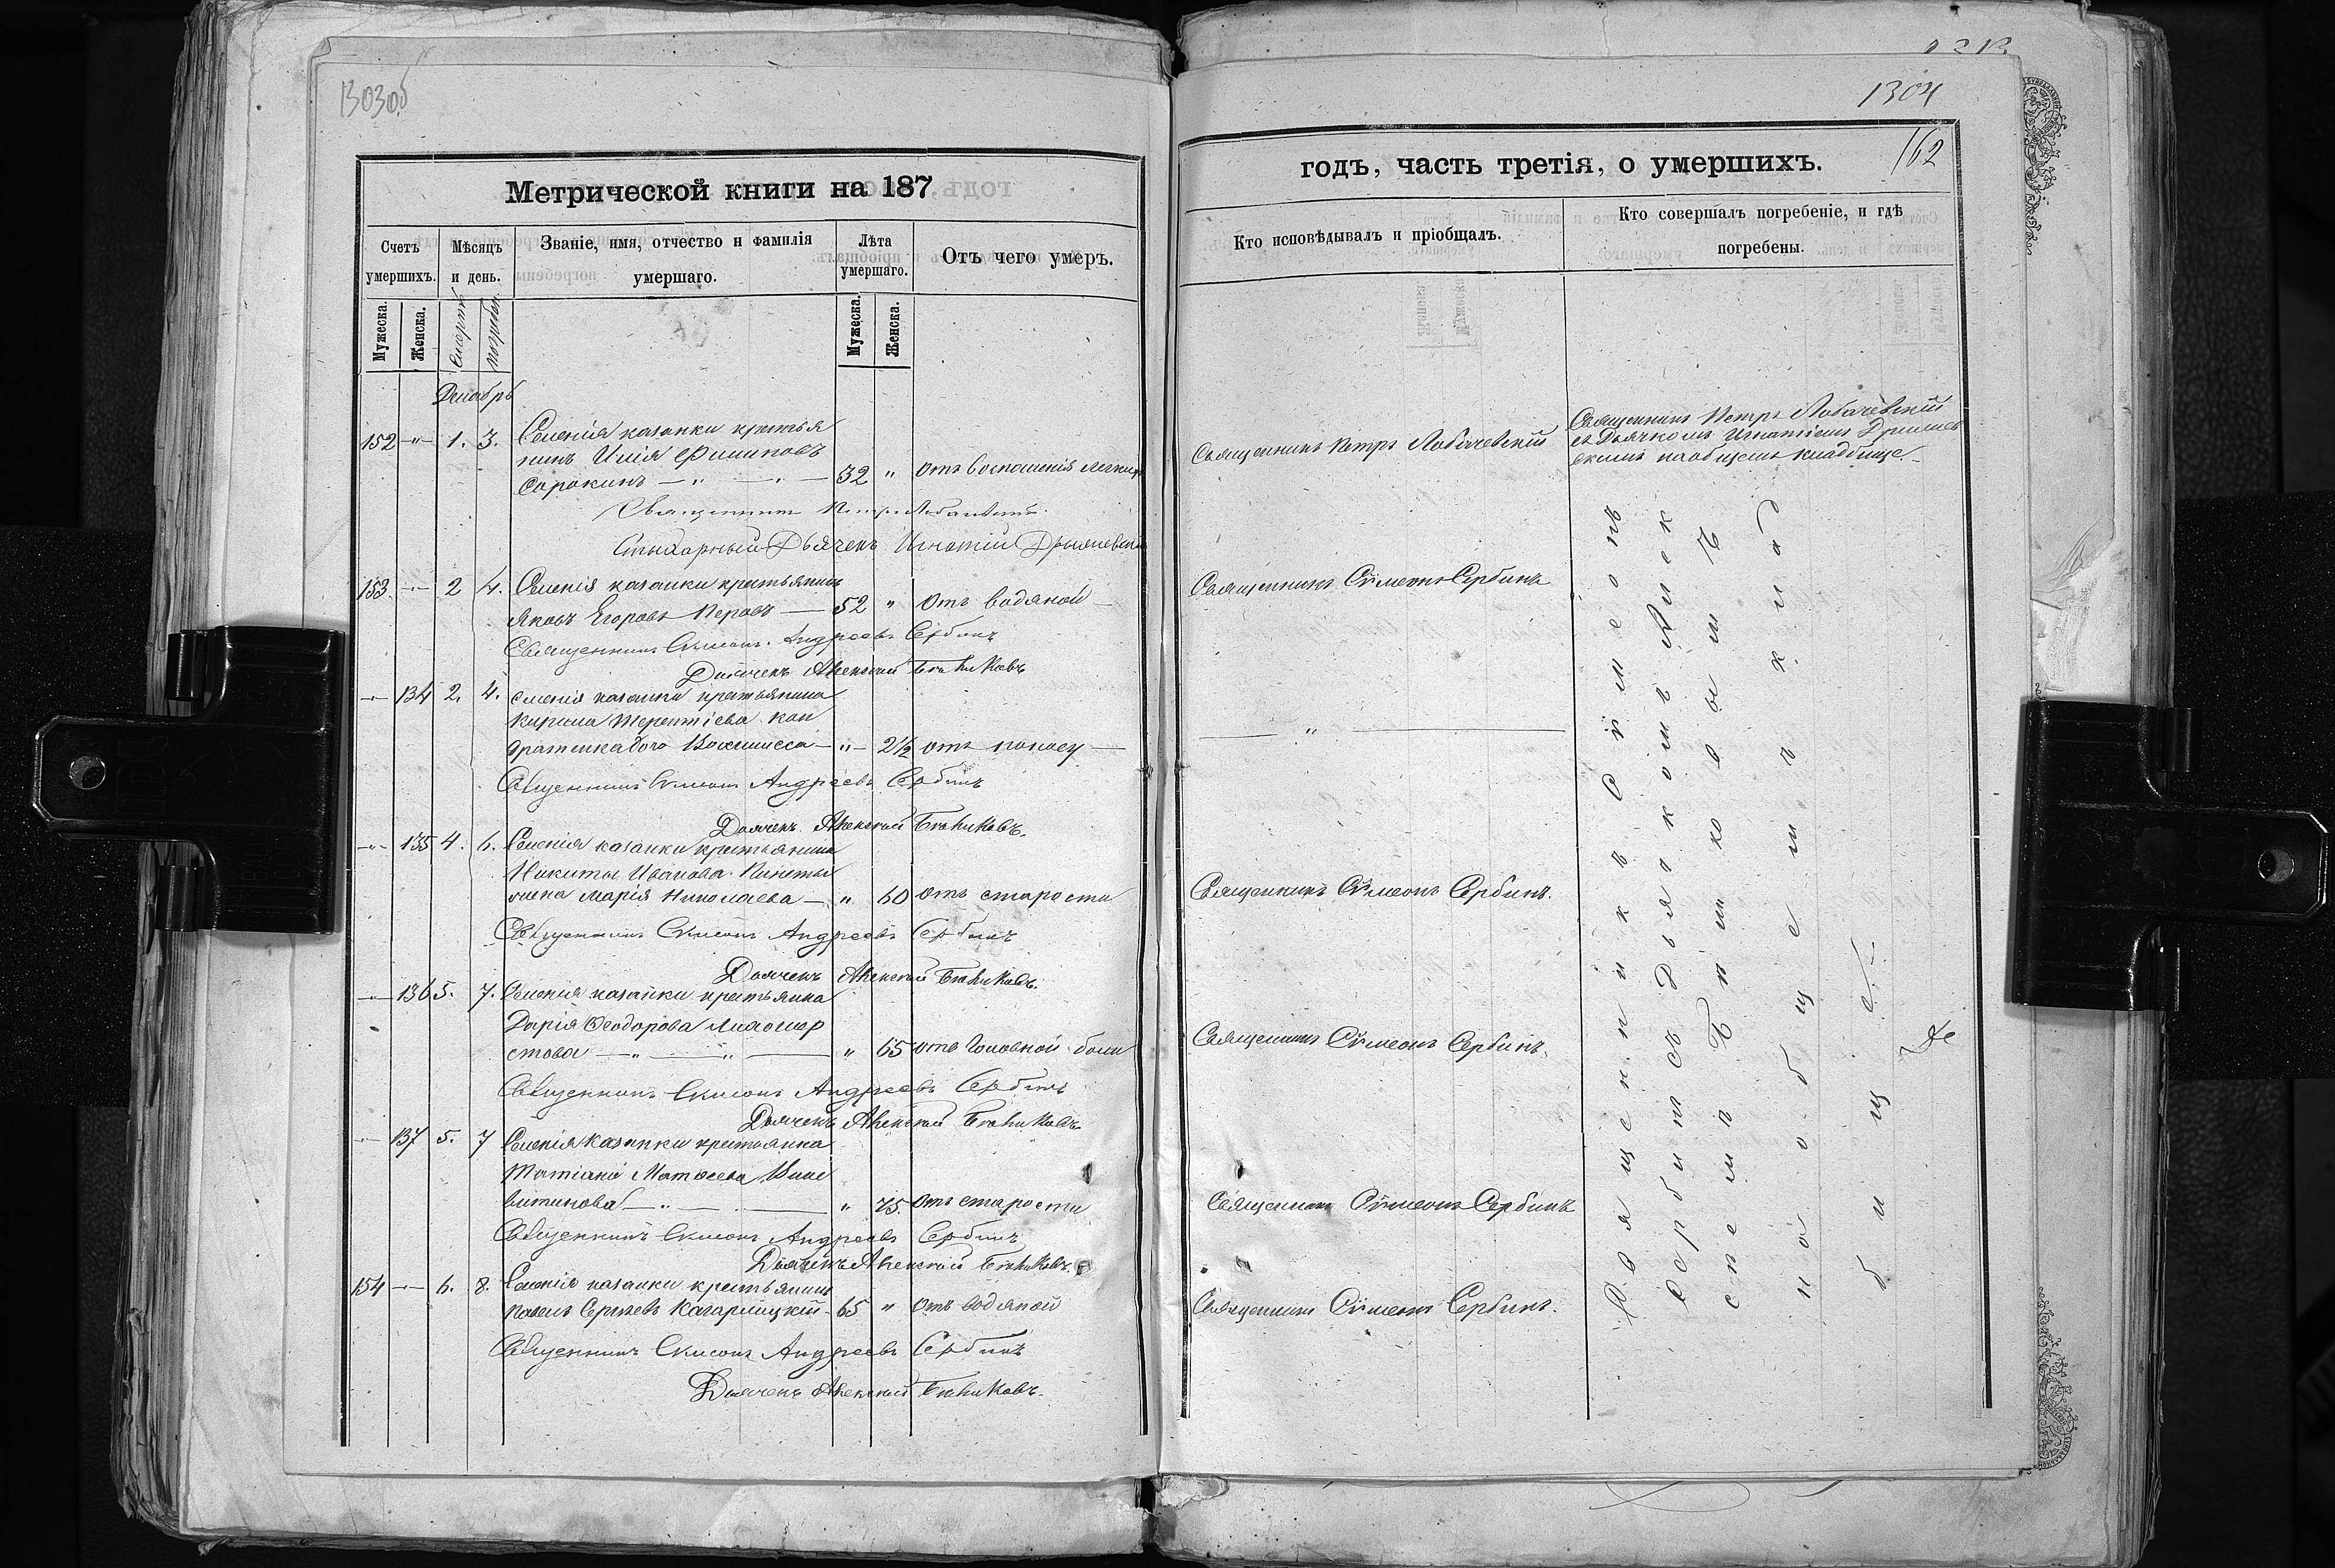 1303об
Метрической книги на 187
Счетъ умершихъ.
Мѣсяцъ и день.
Званіе, имя, отчество и фамилія умершаго.
Лѣта умершаго.
Отъ чего умеръ.
Мужеска.
Женска.
смерти
погребен.
Мужеска.
Женска.
Декабрь
152 -"- 1. 3. Селенія казанки крестья
нинъ Илія Филиповъ
Сорокинъ — " — 32 " отъ восполенія легкихъ
Священникъ Петръ Лобачевскій
Стихарный Дьячекъ Игнатій
153 -"- 2 4. Селенія казанки крестьянинъ
Яковъ Егоровъ Перовъ — 52 " отъ водяной —
Священникъ Симеонъ Андреевъ Сербинъ
Дьячекъ Алексѣй
-"- 134 2. 4. селенія казанки крестьянина
Кирила Терентіева кон
дратенка дочь — " — 2½ отъ поносу —
Священникъ Симеонъ Андреевъ Сербинъ
Дьячекъ Алексѣй
-"- 135 4. 6. Селенія казанки крестьянина
Никиты Иванова
жена Марія Николаева — " 60 отъ старости
Священникъ Симеонъ Андреевъ Сербинъ
Дьячекъ Алексѣй
-"- 136 5. 7. Селенія казанки крестьянка
Дарія Феодорова
стова — " — " — " 65 отъ головной боли
Священникъ Симеонъ Андреевъ Сербинъ
Дьячекъ Алексѣй
-"- 137 5. 7 Селенія казанки крестьянка
Татіана Матфеева
— " — " 75. отъ старости
Священникъ Симеонъ Андреевъ Сербинъ
Дьячекъ Алексѣй
154 -"- 6. 8. Селенія казанки крестьянинъ
павелъ Сергѣевъ Кагарлицкій - 65 " отъ водяной
Священникъ Симеонъ Андреевъ Сербинъ
Дьячекъ Алексѣй
1304
162
годъ, часть третія, о умершихъ.
Кто исповѣдывалъ и пріобщалъ.
Кто совершалъ погребеніе, и гдѣ погребены.
Священникъ Петръ Лобачевскій
Священникъ Петръ Лобачевскій
съ Дьячкомъ Игнатіемъ
на общемъ кладбище.
Священникъ Сѵмеонъ Сербинъ
— " —
Священникъ Сѵмеонъ Сербинъ.
Священникъ Сѵмеонъ Сербинъ.
Священникъ Сѵмеонъ Сербинъ
Священникъ Сѵмеонъ Сербинъ.
Священникъ Сѵмеонъ
Сербинъ съ Дьячкомъ Алек
сѣемъ
на общемъ клад
бище.